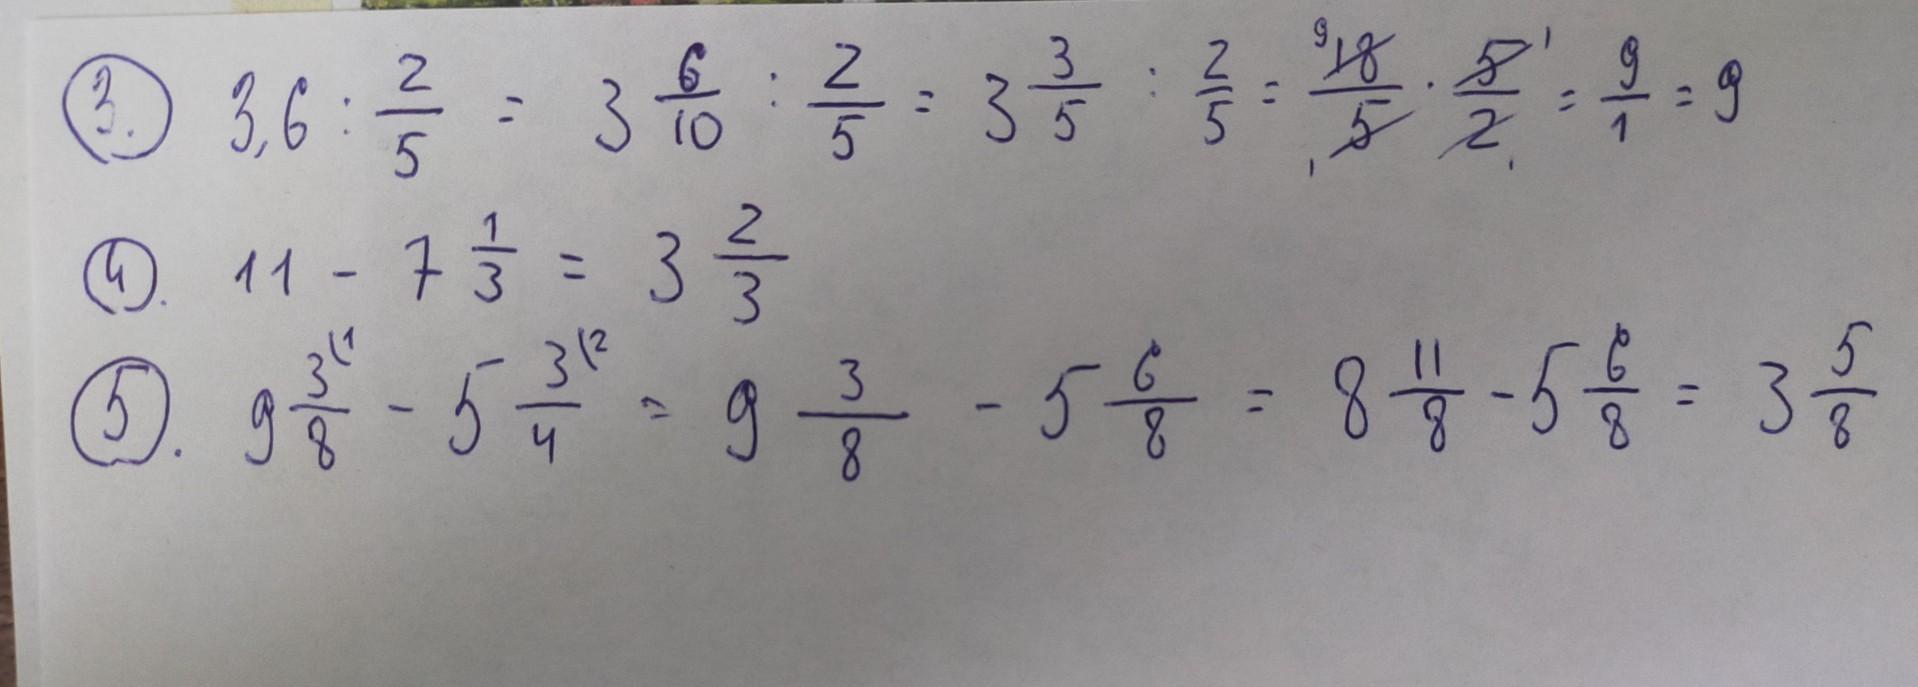 3. 3,6 : 2/5 = 3 6/10 : 2/5 = 3 3/5 : 2/5 = 18/5 · 5/2 = 9/1 = 9
4. 11 - 7 1/3 = 3 2/3
5. 9 3/8 - 5 3/4 = 9 3/8 - 5 6/8 = 8 11/8 - 5 6/8 = 3 5/8